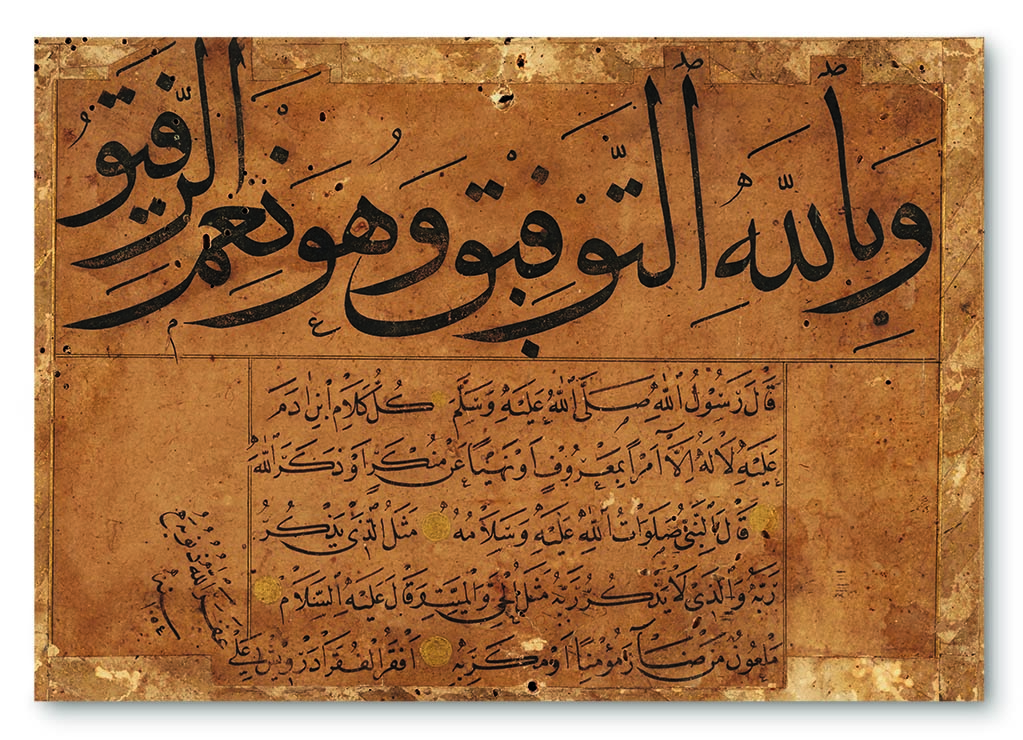 وَبِاللّٰهِ التَّوْفِيقُ وَهُوَ نِعْمَ الرَّفِيقُ
قَالَ رَسُولُ اللّٰهِ صَلَّى اللّٰهُ عَلَيْهِ وَسَلَّمَ كُلُّ كَلَامِ ابْنِ اٰدَمَ
عَلَيْهِ لَا لَهُ اِلَّا اَمْرًا بِمَعْرُوفٍ اَوْ نَهْيًا عَنْ مُنْكَرٍ اَوْ ذِكْرَ اللّٰهِ
قَالَ النَّبِيُّ صَلَوَاتُ اللّٰهِ عَلَيْهِ وَسَلَامُهُ مَثَلُ الَّذِي يَذْكُرُ
رَبَّهُ وَالَّذِي لَا يَذْكُرُ رَبَّهُ مَثَلُ الْحَيِّ وَالْمَيِّتِ قَالَ عَلَيْهِ السَّلَامُ
مَلْعُونٌ مَنْ ضَارَّ مُؤْمِنًا اَوْ مَكَرَ بِهِ اَفْقَرُ الْفُقَرَا دَرْوِيش عَلِي
غَفَرَ اللّٰهُ ذُنُوبَهُ
سنة ١٠٥٤